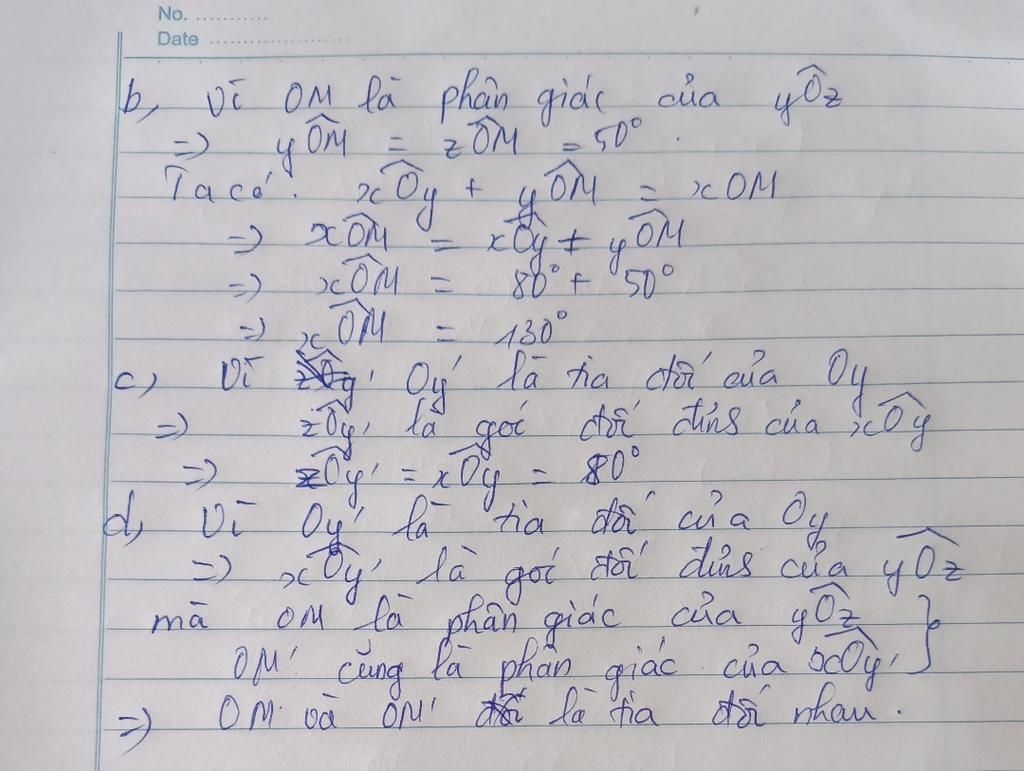 No. ............
Date ........................
b, Vì OM là phân giác của yÔz
=> yÔM = zÔM = 50° .
Ta có : xÔy + yÔM = xOM
=> xÔM = xÔy + yÔM
=> xÔM = 80° + 50°
=> xÔM = 130°
c) Vì Oy' là tia đối của Oy
=> zÔy' là góc đối đỉnh của xÔy
=> zÔy' = xÔy = 80°
d, Vì Oy' là tia đối của Oy
=> xÔy' là góc đối đỉnh của yÔz
mà OM là phân giác của yÔz }
OM' cũng là phân giác của xÔy'
=> OM và OM' là tia đối nhau .